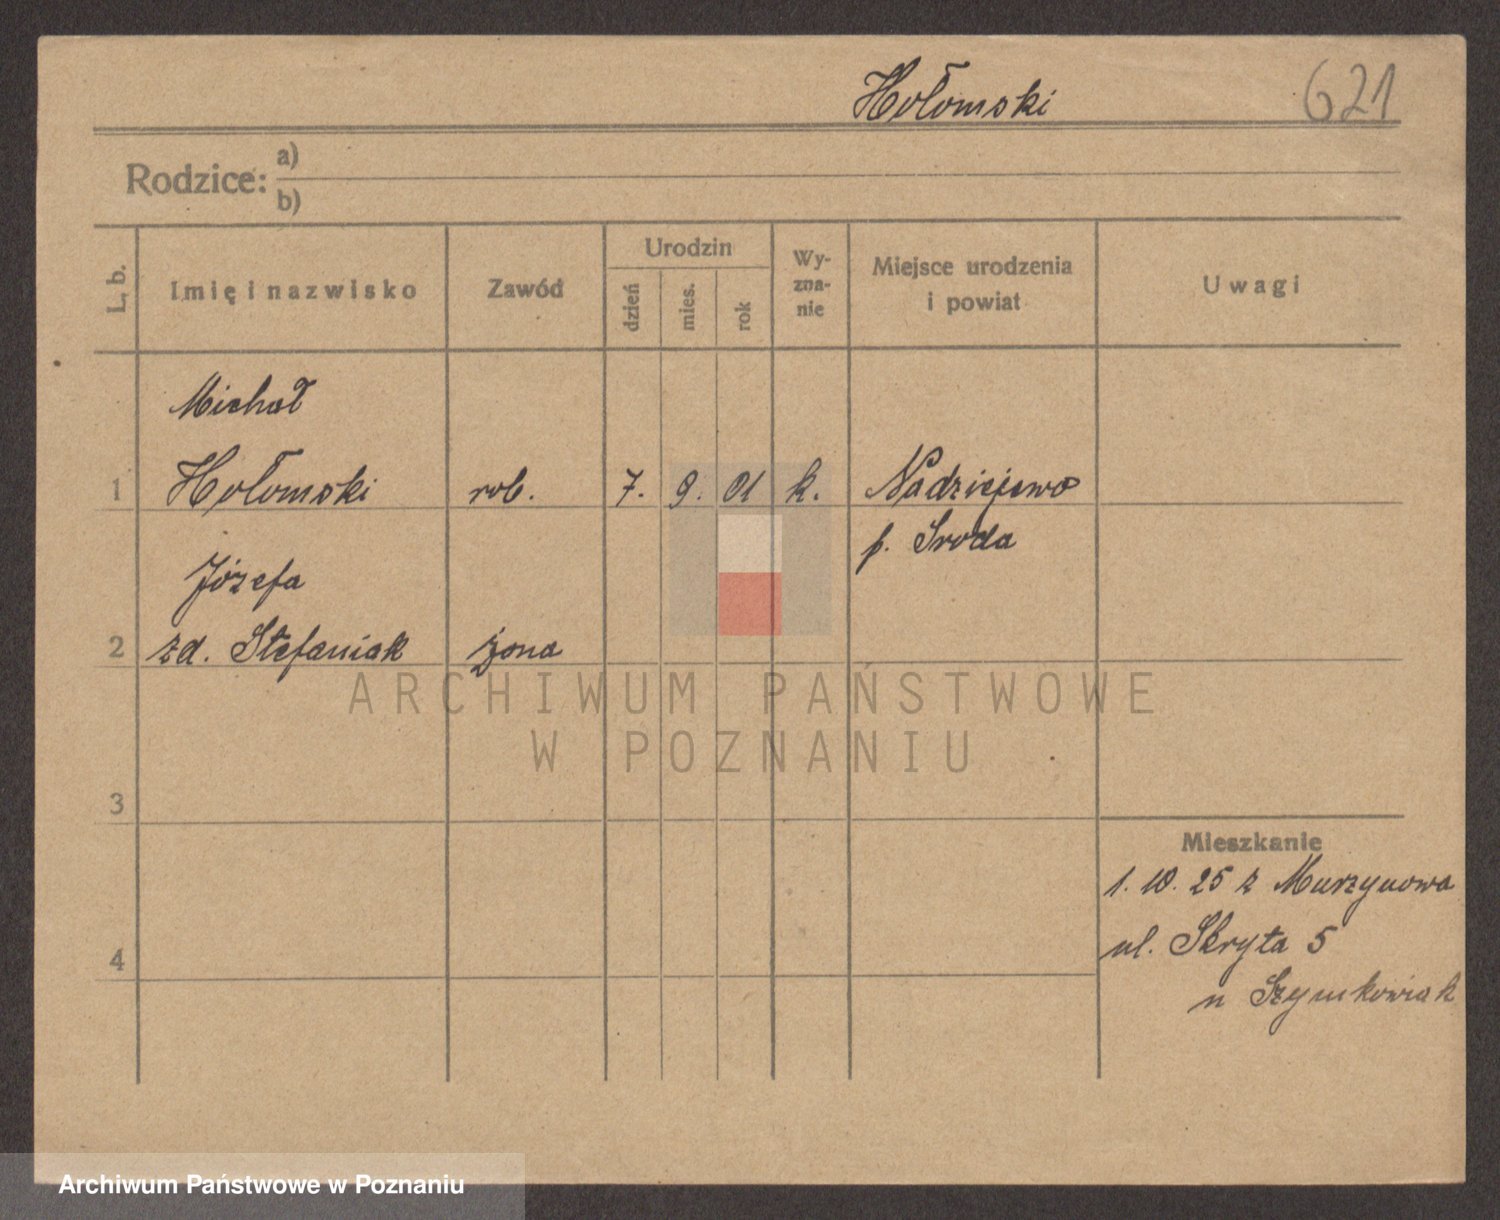 Hołomski 621
Rodzice: a)
b)
L. b. Imię i nazwisko Zawód Urodzin dzień mies. rok Wy-zna-nie Miejsce urodzenia i powiat Uwagi
Michał
1 Hołomski rob. 7. 9. 01 k. Nadziejewo
p. Sroda
Józefa
2 zd. Stefaniak żona
ARCHIWUM PAŃSTWOWE
W POZNANIU
3
Mieszkanie
1. 10. 25 z Murzynowa
ul. Skryta 5
4
u Szymkowiak
Archiwum Państwowe w Poznaniu